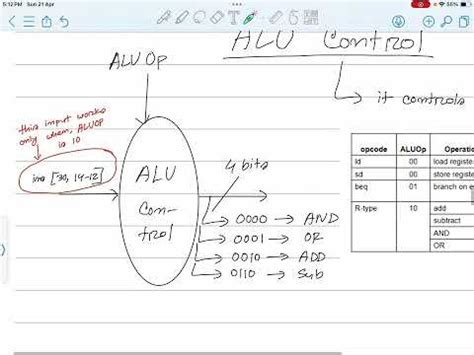 5:12 PM Sun 21 Apr
55%
ALU Control
ALU Op
it controls
this input works
only when, ALUOP
is 10
ins [30, 14-12]
ALU
Con-
trol
4 bits
0000 → AND
0001 → OR
0010 → ADD
0110 → Sub
opcode ALUOp Operatio
ld 00 load registe
sd 00 store registe
beq 01 branch on e
R-type 10 add
subtract
AND
OR